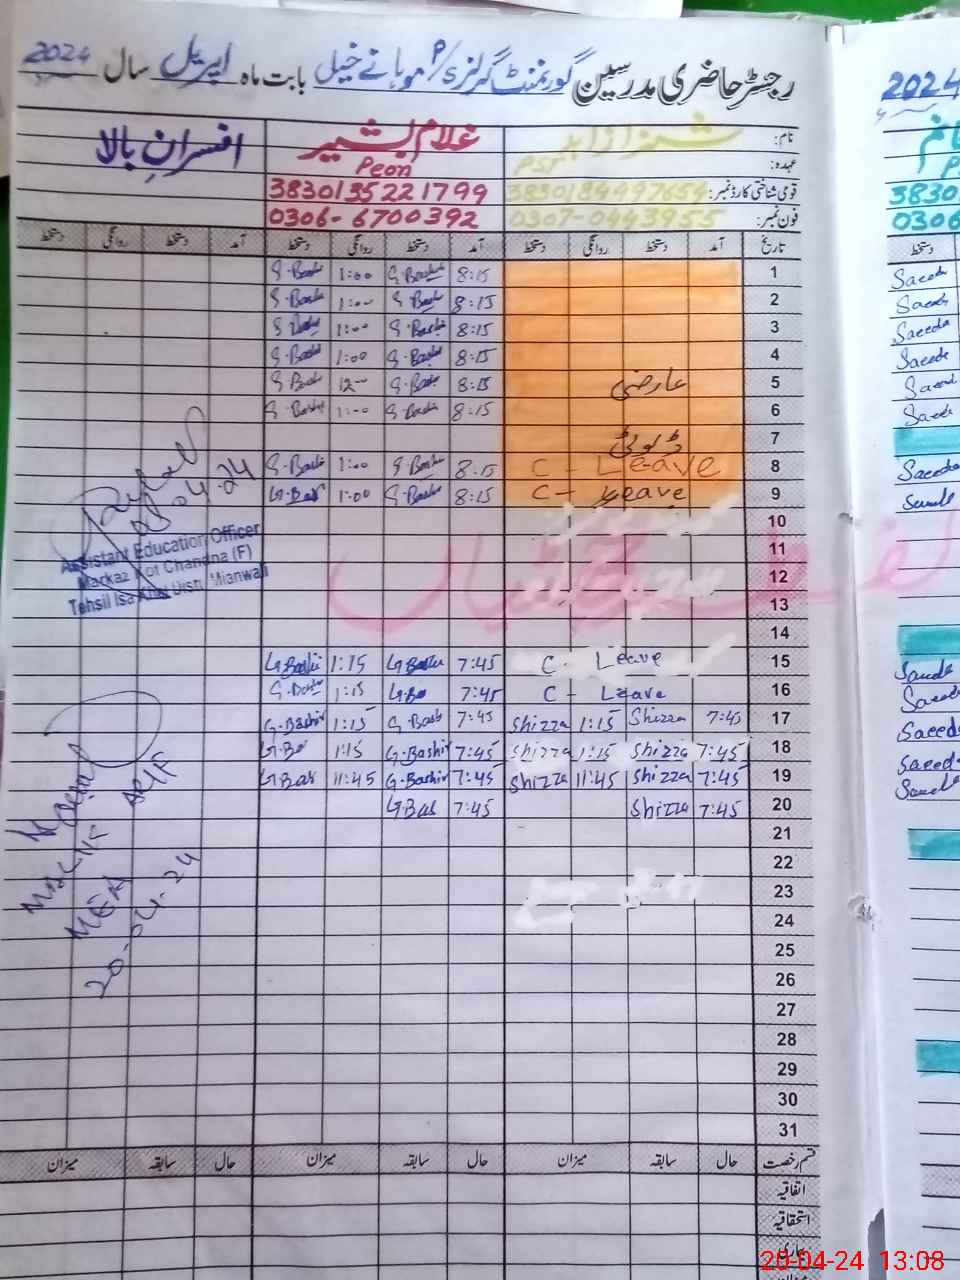 رجسٹر حاضری مدرسین گورنمنٹ گرلز P/S موہانے خیل بابت ماہ اپریل سال 2024
نام: شنزا زاہد غلام بشیر افسران بالا
عہدہ: PST Peon
قومی شناختی کارڈ نمبر: 3830184497654 3830135221799
فون نمبر: 0307-0443955 0306-6700392
تاریخ آمد دستخط روانگی دستخط آمد دستخط روانگی دستخط آمد دستخط روانگی دستخط
G-Bashi 1:00 G-Bashi 8:15 1
G-Bashi 1:00 G-Bashi 8:15 2
1:00 G-Bashi 8:15 3
G-Bashi 1:00 G-Bashi 8:15 4
12- 8:15 عارضی 5
G-Bashi 1:00 G-Bashi 8:15 6
ڈیوٹی 7
G-Bashi 1:00 G-Bashi 8:15 C - Leave 8
G-Bas 1:00 G-Bashi 8:15 C - Leave 9
10
11
12
13
14
G-Bashi 1:15 G-Bashi 7:45 C - Leave 15
1:15 G-Ba 7:45 C - Leave 16
G-Bashir 1:15 G-Bash 7:45 Shizza 1:15 Shizza 7:45 17
G-Ba 1:15 G-Bashir 7:45 Shizza 1:15 Shizza 7:45 18
G-Bas 11:45 G-Bashir 7:45 Shizza 11:45 Shizza 7:45 19
G-Bas 7:45 Shizza 7:45 20
21
22
23
24
25
26
27
28
29
30
31
قسم رخصت حال سابقہ میزان حال سابقہ میزان حال سابقہ میزان
اتفاقیہ
استحقاقیہ
بیماری
میزان
Assistant Education Officer
Markaz Kot Chandna (F)
Tehsil Isa Khel Distt. Mianwali
MEA
20-04-24
2024
3830
0306
دستخط
Saeeda
Saeeda
Saeeda
Saeeda
Saeeda
20-04-24 13:08